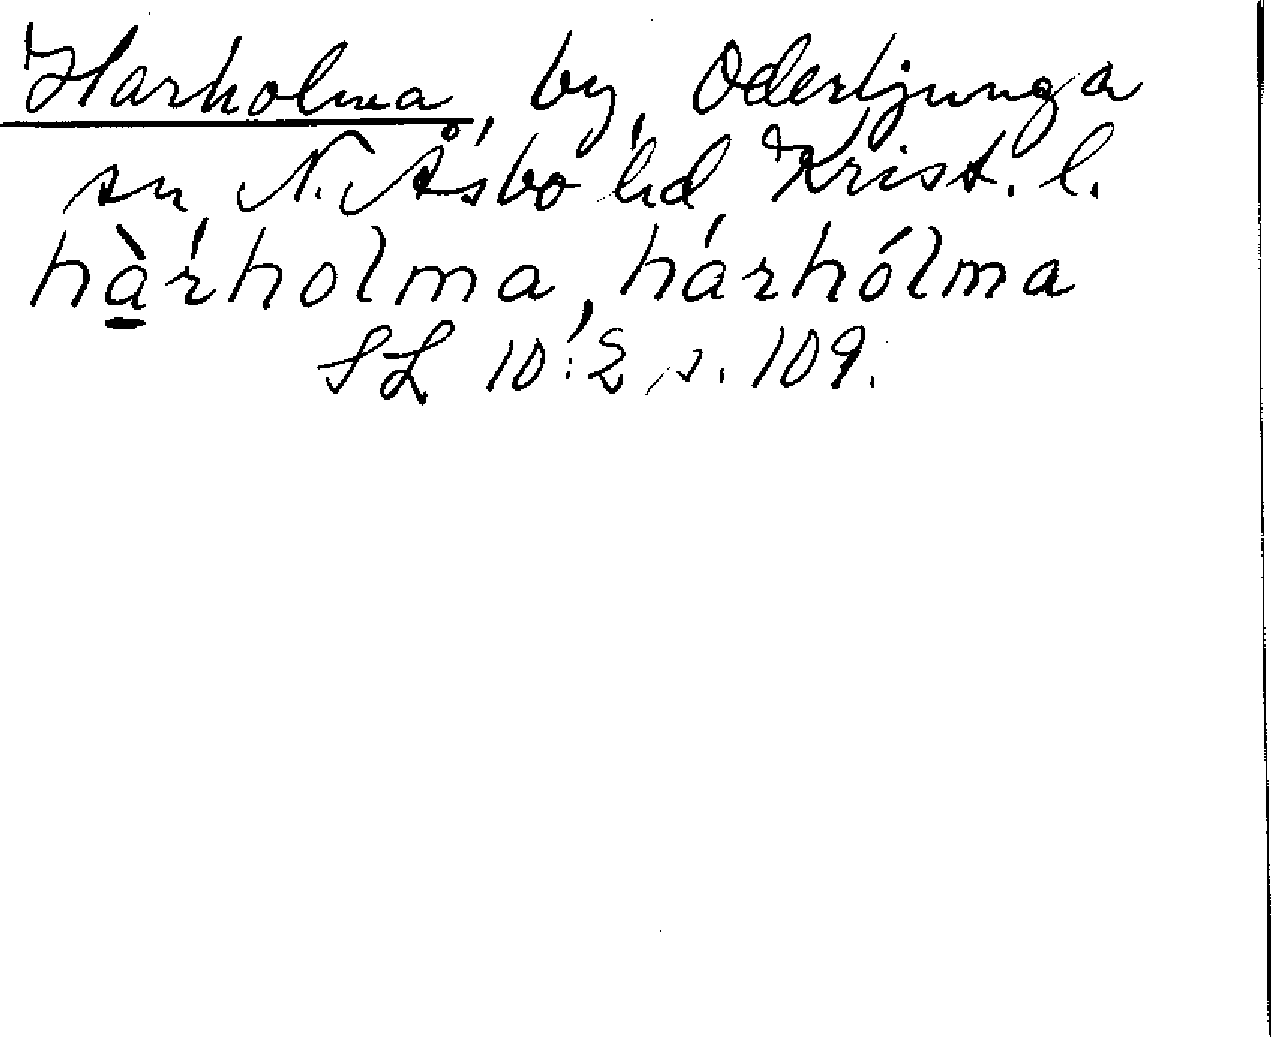 Harholma, by, Oderljunga
sn, N. Åsbo hd, Krist. l.
hà̱rholma, hárhólma
SL 10:2 s. 109.